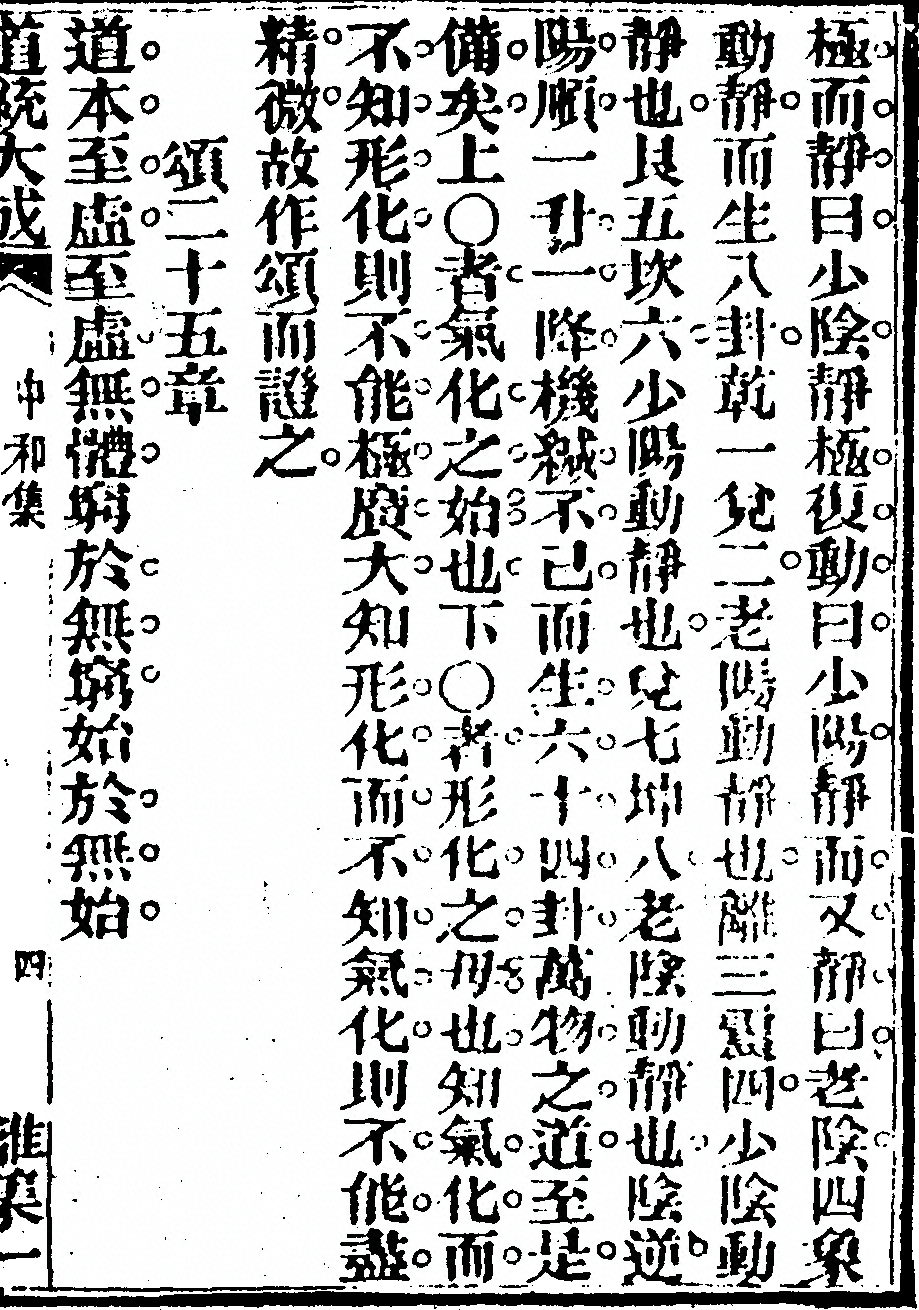 極而靜曰少陰靜極復動曰少陽靜而又靜曰老陰四象
動靜而生八卦乾一兌二老陽動靜也離三震四少陰動
靜也艮五坎六少陽動靜也兌七坤八老陰動靜也陰逆
陽順一升一降機緘不已而生六十四卦萬物之道至是
備矣上○者氣化之始也下○者形化之母也知氣化而
不知形化則不能極廣大知形化而不知氣化則不能盡
精微故作頌而證之
頌二十五章
道本至虛至虛無體窮於無窮始於無始
道統大成
中和集
四
集一